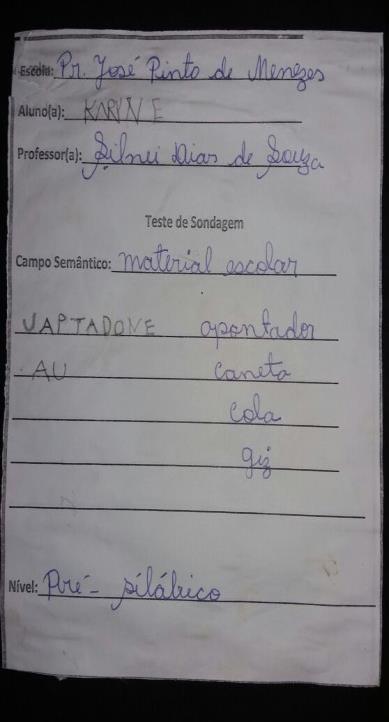 Escola: Pr. José Pinto de Menezes
Aluno(a): KARINE
Professor(a): Silnei Dias de Souza
Teste de Sondagem
Campo Semântico: material escolar
UAPTADONE apontador
AU caneta
cola
giz
Nível: Pré-silábico